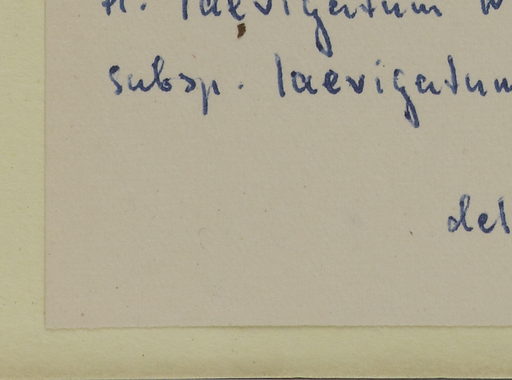 H. laevigatum W
subsp. laevigatum
det